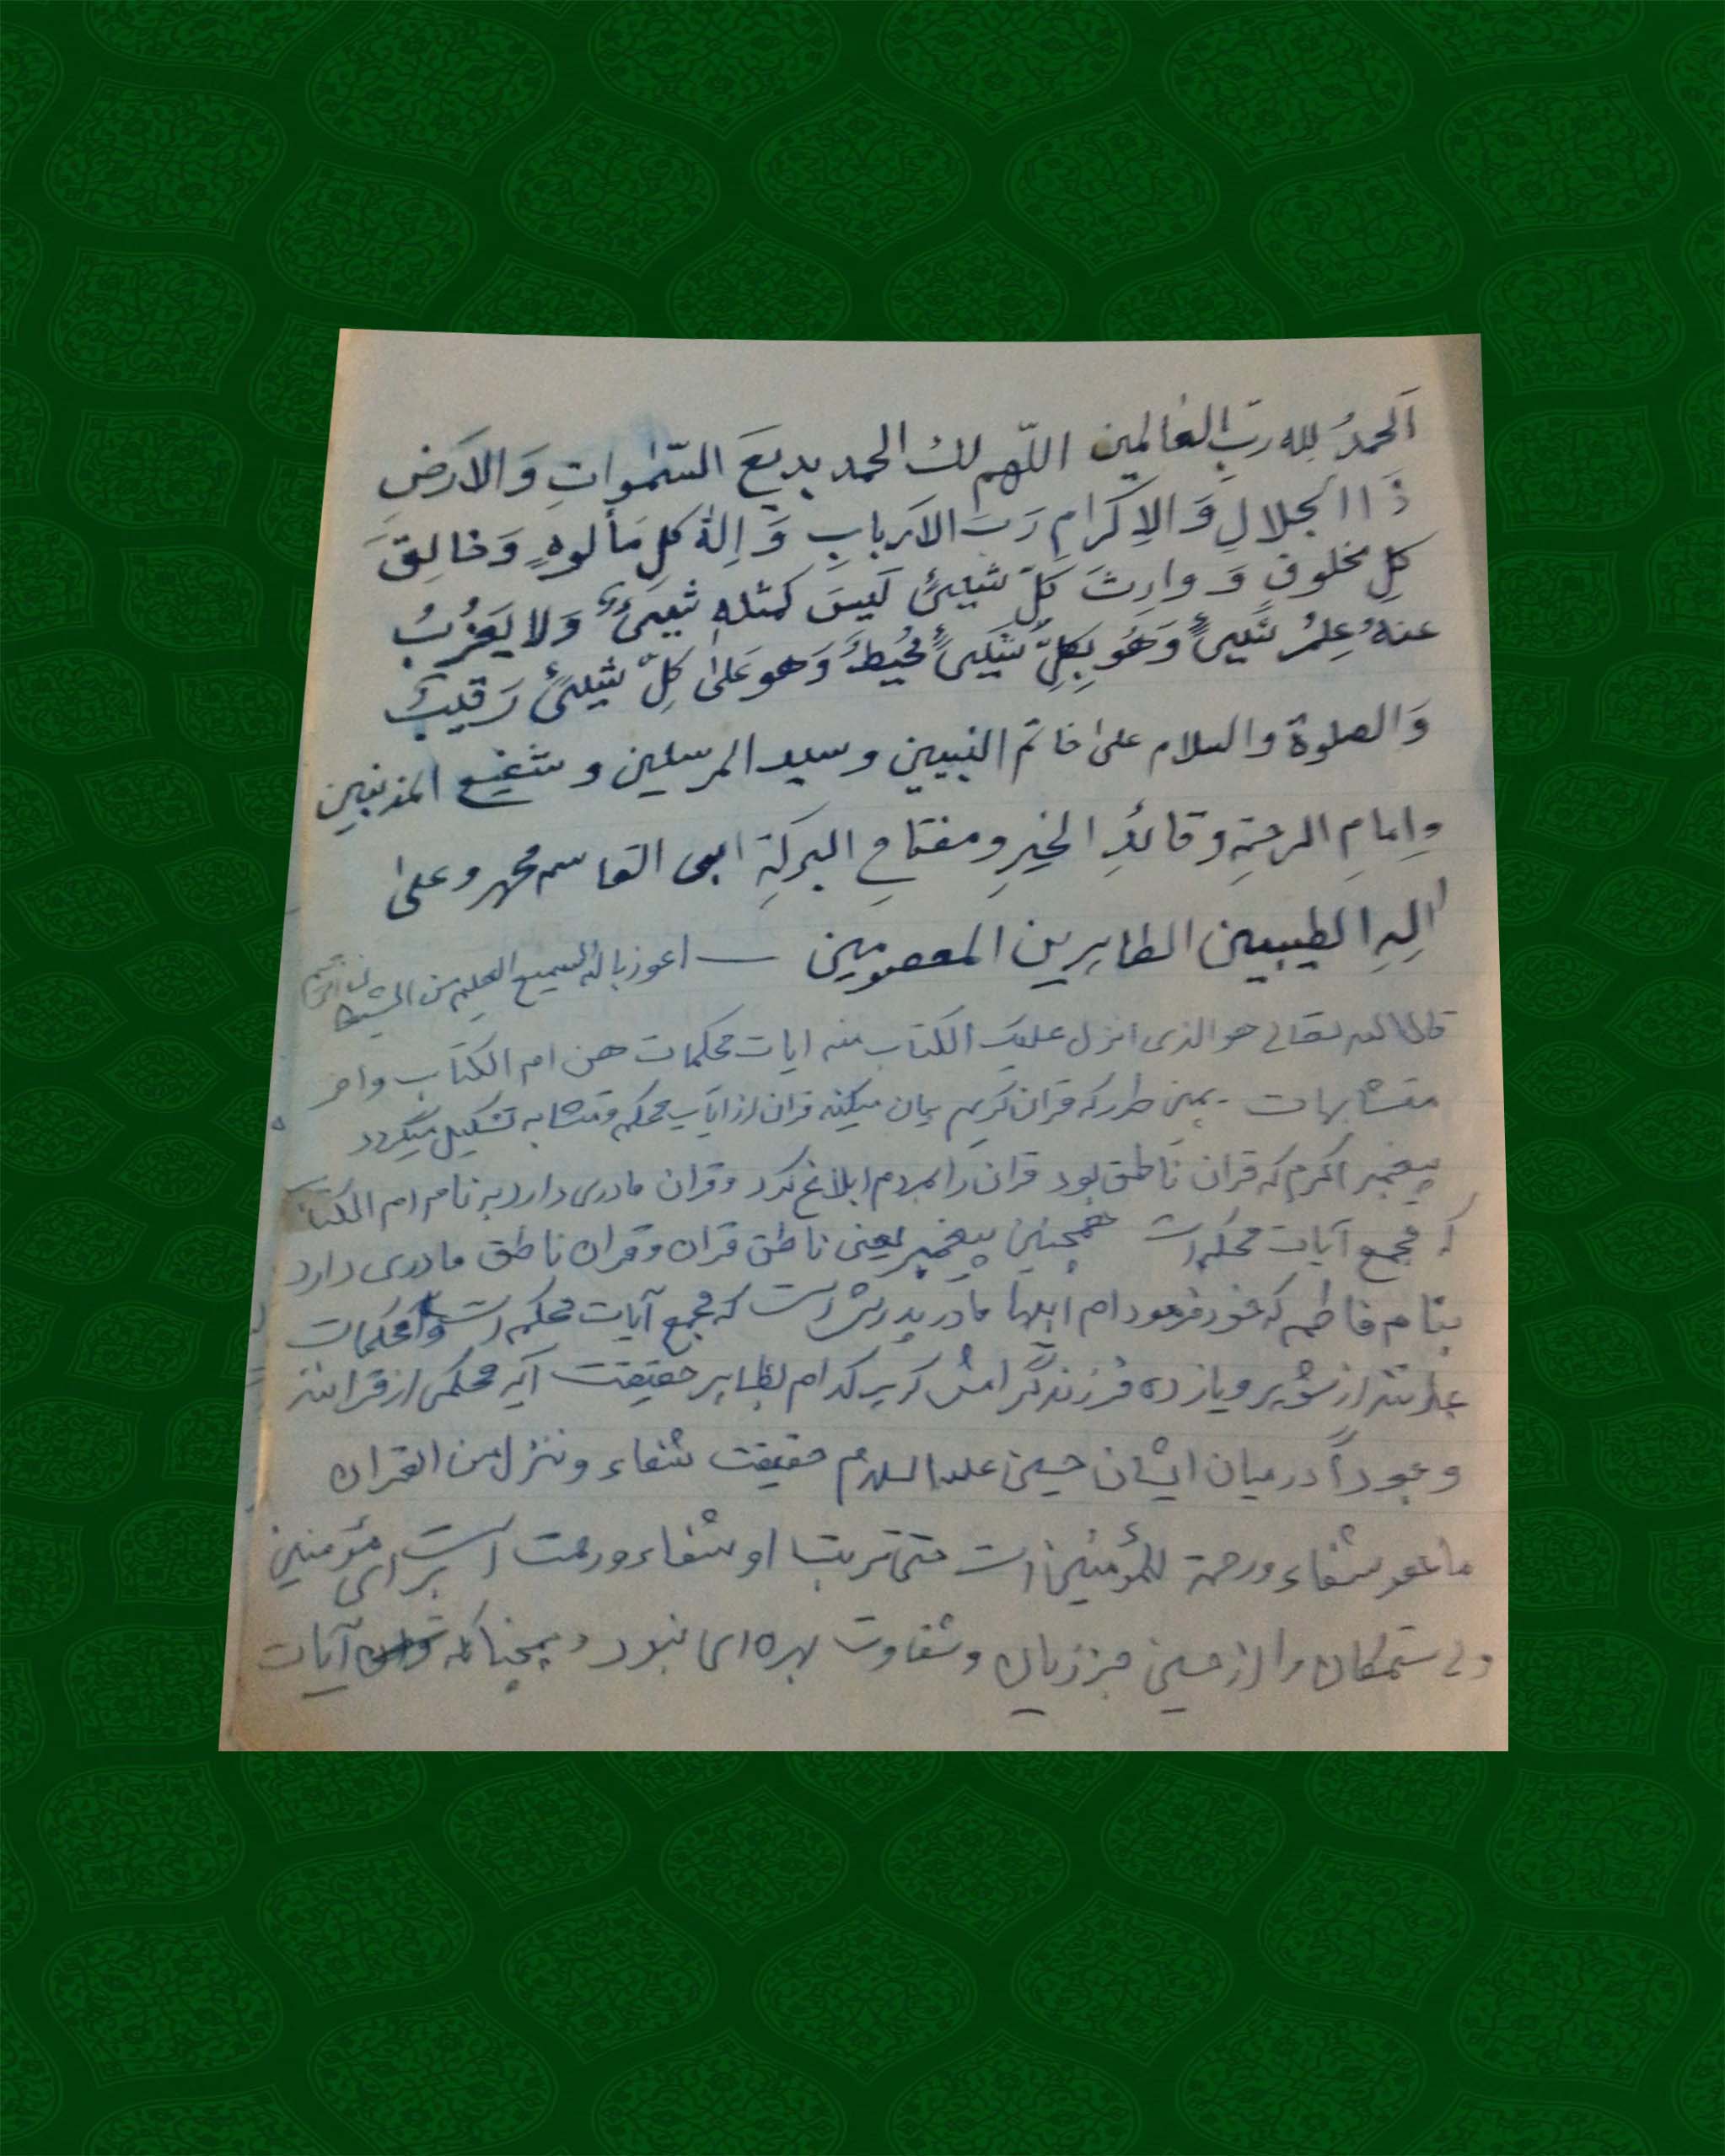 اَلحمدُ لله ربِّ العالمین اللّهم لك الحمد بدیعَ السّمٰواتِ وَ الاَرضِ
ذَا الجلالِ وَ الاِکرامِ رَبَّ الاَربابِ وَ اِلٰهَ کلِ مَألوهٍ وَ خالِقَ
کلِ مخلوقٍ وَ وارِثَ کلِّ شیئٍ لَیسَ کمثلهِ شیئٌ وَ لا یَعزُبُ
عنهُ عِلمُ شَیئٍ وَ هُوَ بِکلِّ شَیئٍ مُحیطٌ وَ هو عَلیٰ کلِّ شیئٍ رَقیبٌ
وَ الصلوة و السلام علیٰ خاتم النبیین و سید المرسلین و شفیع المذنبین
و اِمامِ الرحمةِ و قائدِ الخیرِ و مفتاحِ البرکةِ ابی القاسم محمد و علیٰ
الِهِ الطیبین الطاهرین المعصومین — اعوذ بالله السمیع العلیم من الشیطان
قال الله تعالی هو الذی انزل علیک الکتاب منه ایات محکمات هن ام الکتاب و اخر
متشابهات - همین طور که قران کریم بیان میکند قران از آیات محکم و متشابه تشکیل میگردد
پیغمبر اکرم که قران ناطق بود قران را بمردم ابلاغ کرد و قران مادری دارد به نام ام الکتاب
که مجمع آیات محکم است همچنین پیغمبر یعنی ناطق قران و قران ناطق مادری دارد
بنام فاطمه که خود فرمود ام ابیها مادر پدرش است که مجمع آیات محکم است و محکمات
عبارتند از شوهر و یازده فرزند گرامش که هر کدام بظاهر حقیقت آیه محکمی از قرانند
وجوداً در میان ایشان حسین علیه السلام حقیقت شفاء و ننزل من القران
ما هو شفاء و رحمة للمؤمنین است حتی تربت او شفاء و رحمت است برای مؤمنین
ولی ستمکاران را از حسین جز زیان و شقاوت بهره ای نبود و همچنانکه آیات